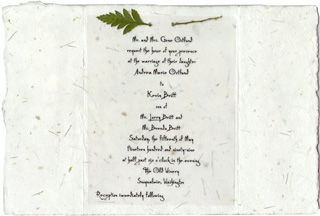 Mr. and Mrs. Gene Outland
request the honor of your presence
at the marriage of their daughter
Andrea Marie Outland
to
Kevin Britt
son of
Mr. Larry Britt and
Ms. Brenda Britt
Saturday, the fifteenth of May
Nineteen hundred and ninety-nine
at half past six o'clock in the evening
The Old Winery
Snoqualmie, Washington
Reception immediately following